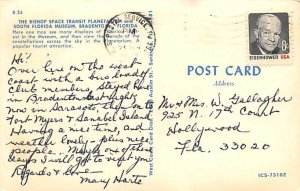 B 24
THE BISHOP SPACE TRANSIT PLANETARIUM
SOUTH FLORIDA MUSEUM, BRADENTON, FLORIDA
Here one may see many displays of
in the Museum, and then view the parade of
constellations across the sky in the
popular tourist attraction.
Hi!
Over here on the west
coast with a bus load of
Club members, stayed
in Bradenton last night
now in Sarasota, then to
Fort Myers & Sanabel Island
Having a nice time, and
weather lovely - plus nice
people. Maybe one of these
days I will get to visit you
Regards & Love
Mary Harte
EISENHOWER USA
8c
POST CARD
Address
Mr & Mrs W. Gallagher
925 N. 17th Court
Hollywood
Fla. 33020
ICS-73102